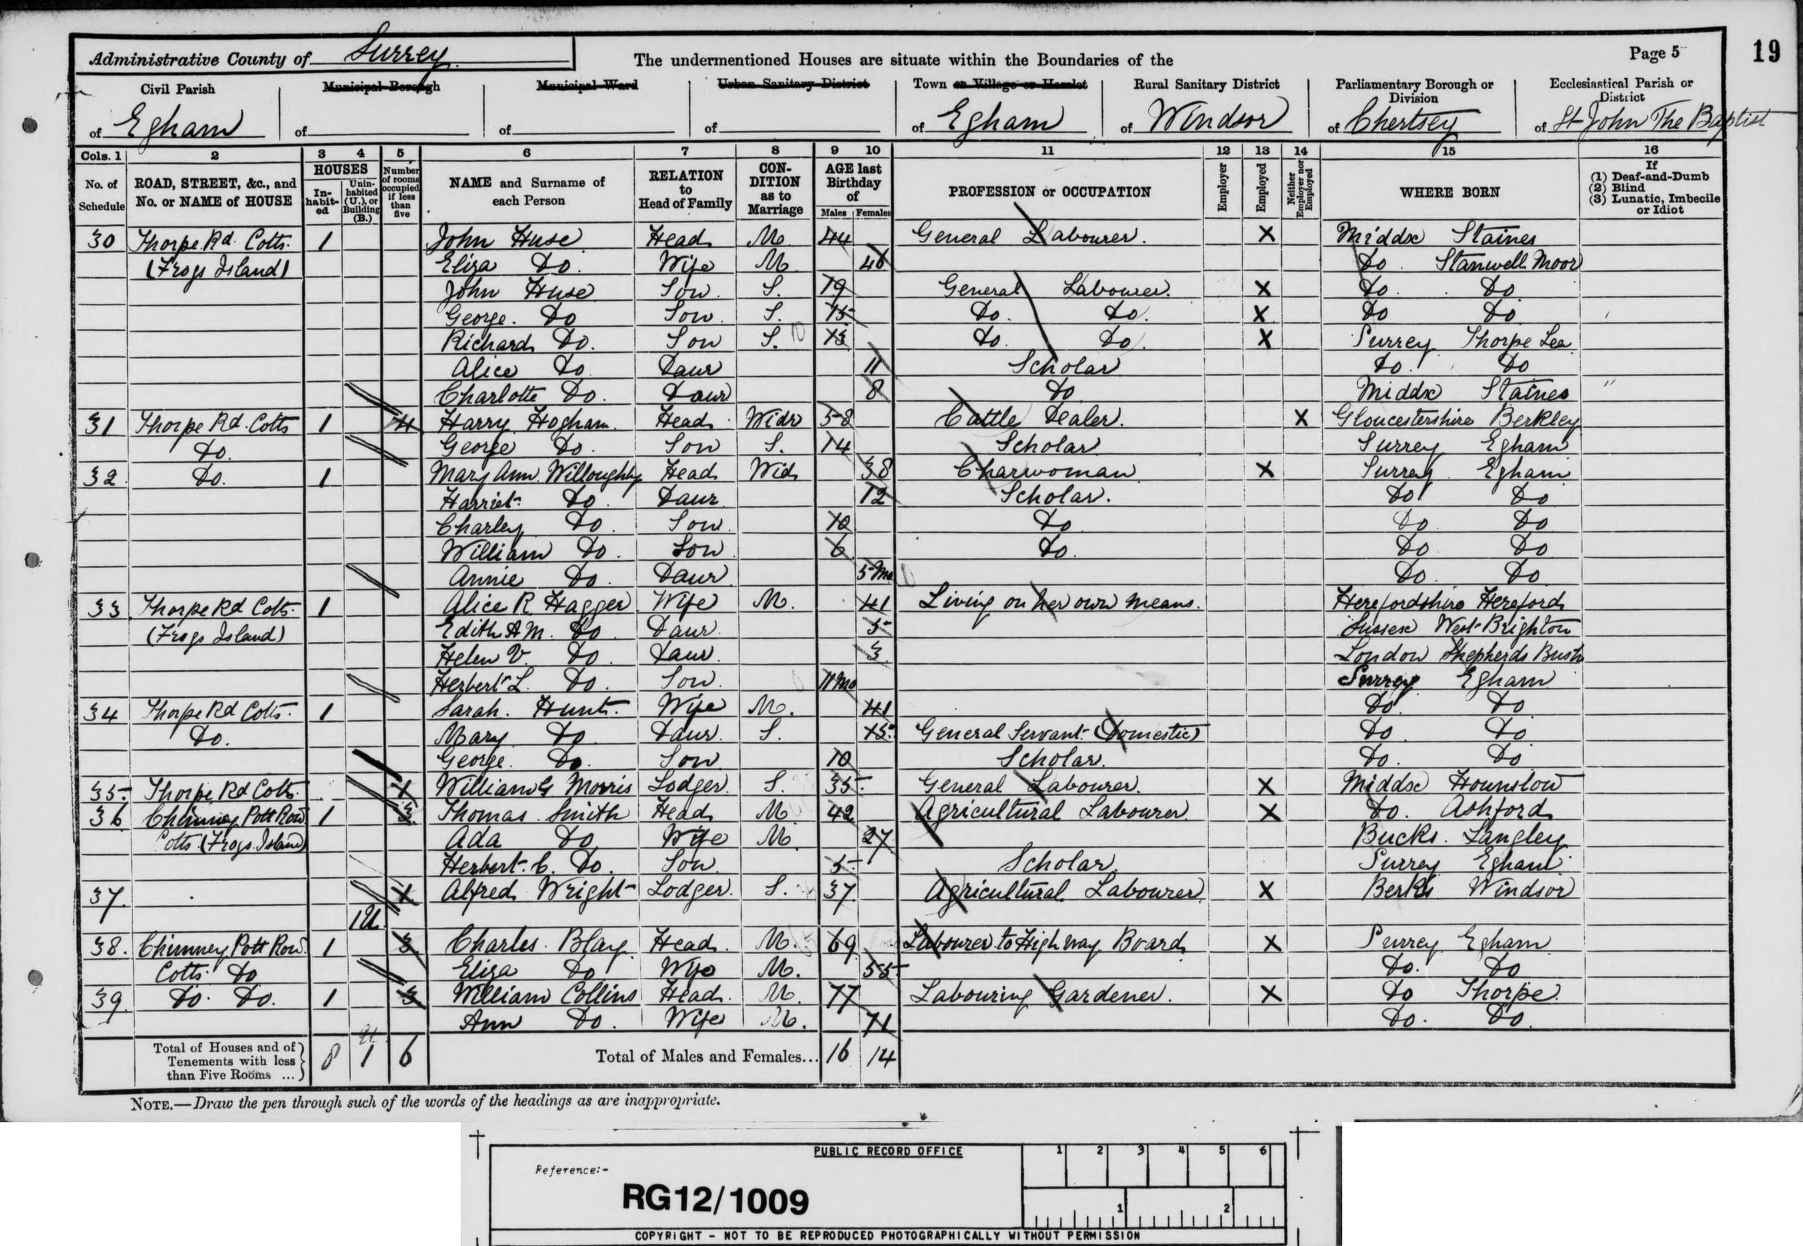 Administrative County of Surrey. The undermentioned Houses are situate within the Boundaries of the Page 5 19
Civil Parish Municipal Borough Municipal Ward Urban Sanitary District Town or Village or Hamlet Rural Sanitary District Parliamentary Borough or Division Ecclesiastical Parish or District
of Egham of of of of Egham of Windsor of Chertsey of St John The Baptist
Cols. 1 2 3 4 5 6 7 8 9 10 11 12 13 14 15 16
No. of Schedule ROAD, STREET, &c., and No. or NAME of HOUSE HOUSES In-habit-ed Unin-habited (U.), or Building (B.) Number of rooms occupied if less than five NAME and Surname of each Person RELATION to Head of Family CON-DITION as to Marriage AGE last Birthday of Males Females PROFESSION or OCCUPATION Employer Employed Neither Employer nor Employed WHERE BORN If (1) Deaf-and-Dumb (2) Blind (3) Lunatic, Imbecile or Idiot
30 Thorpe Rd. Cotts. 1 John Huse Head M 44 General Labourer. X Middx Staines
(Frogs Island) Eliza Do. Wife M. 46 Do. Stanwell Moor
John Huse Son S. 19 General Labourer. X Do. Do.
George. Do Son S. 15 Do. Do. X Do Do
Richard Do. Son S. 13 Do. Do. X Surrey Thorpe Lea
Alice Do Daur 11 Scholar Do. Do
Charlotte Do. Daur 8 Do Middx Staines
31 Thorpe Rd. Cotts 1 4 Harry Hogham. Head Widr 58 Cattle Dealer. X Gloucestershire Berkley
Do. George Do. Son S. 14 Scholar Surrey Egham
32 Do. 1 Mary Ann Willoughby Head Wid 38 Charwoman X Surrey Egham
Harriet Do. Daur 12 Scholar. Do Do
Charley Do. Son 10 Do Do Do
William Do. Son 6 Do. Do Do
Annie Do. Daur 5 Mo Do. Do
33 Thorpe Rd Cotts. 1 Alice R Hagger Wife M. 41 Living on her own means. Herefordshire Hereford
(Frogs Island) Edith A.M. Do Daur 5 Sussex West Brighton
Helen V. Do. Daur. 3 London Shepherds Bush
Herbert L. Do. Son. 11 Mo Surrey Egham
34 Thorpe Rd Cotts. 1 Sarah. Hunt. Wife M. 41 Do Do
Do. Mary Do Daur. S. 15 General Servant (Domestic) Do. Do
George. Do. Son 10 Scholar. Do. Do
35 Thorpe Rd Cotts. X William G Morris Lodger. S. 35 General Labourer. X Middx Hounslow
36 Chimney Pott Row 1 3 Thomas Smith Head M. 42 Agricultural Labourer X Do. Ashford
Cotts (Frogs Island) Ada Do Wife M. 27 Bucks. Langley
Herbert C. Do. Son 5 Scholar Surrey Egham
37. X Alfred Wright Lodger. S. 37 Agricultural Labourer X Berks Windsor
1U
38. Chimney Pott Row. 1 3 Charles Blay. Head. M. 69 Labourer to Highway Board X Surrey Egham
Cotts. Do Eliza Do Wife M. 55 Do. Do
39 Do. Do. 1 3 William Collins Head. M. 77 Labouring Gardener. X Do Thorpe
Ann Do. Wife M. 71 Do. Do.
Total of Houses and of Tenements with less than Five Rooms ... 8 1 6 Total of Males and Females... 16 14
NOTE.—Draw the pen through such of the words of the headings as are inappropriate.
PUBLIC RECORD OFFICE 1 2 3 4 5 6
Reference:-
RG12/1009
1 2
COPYRIGHT - NOT TO BE REPRODUCED PHOTOGRAPHICALLY WITHOUT PERMISSION